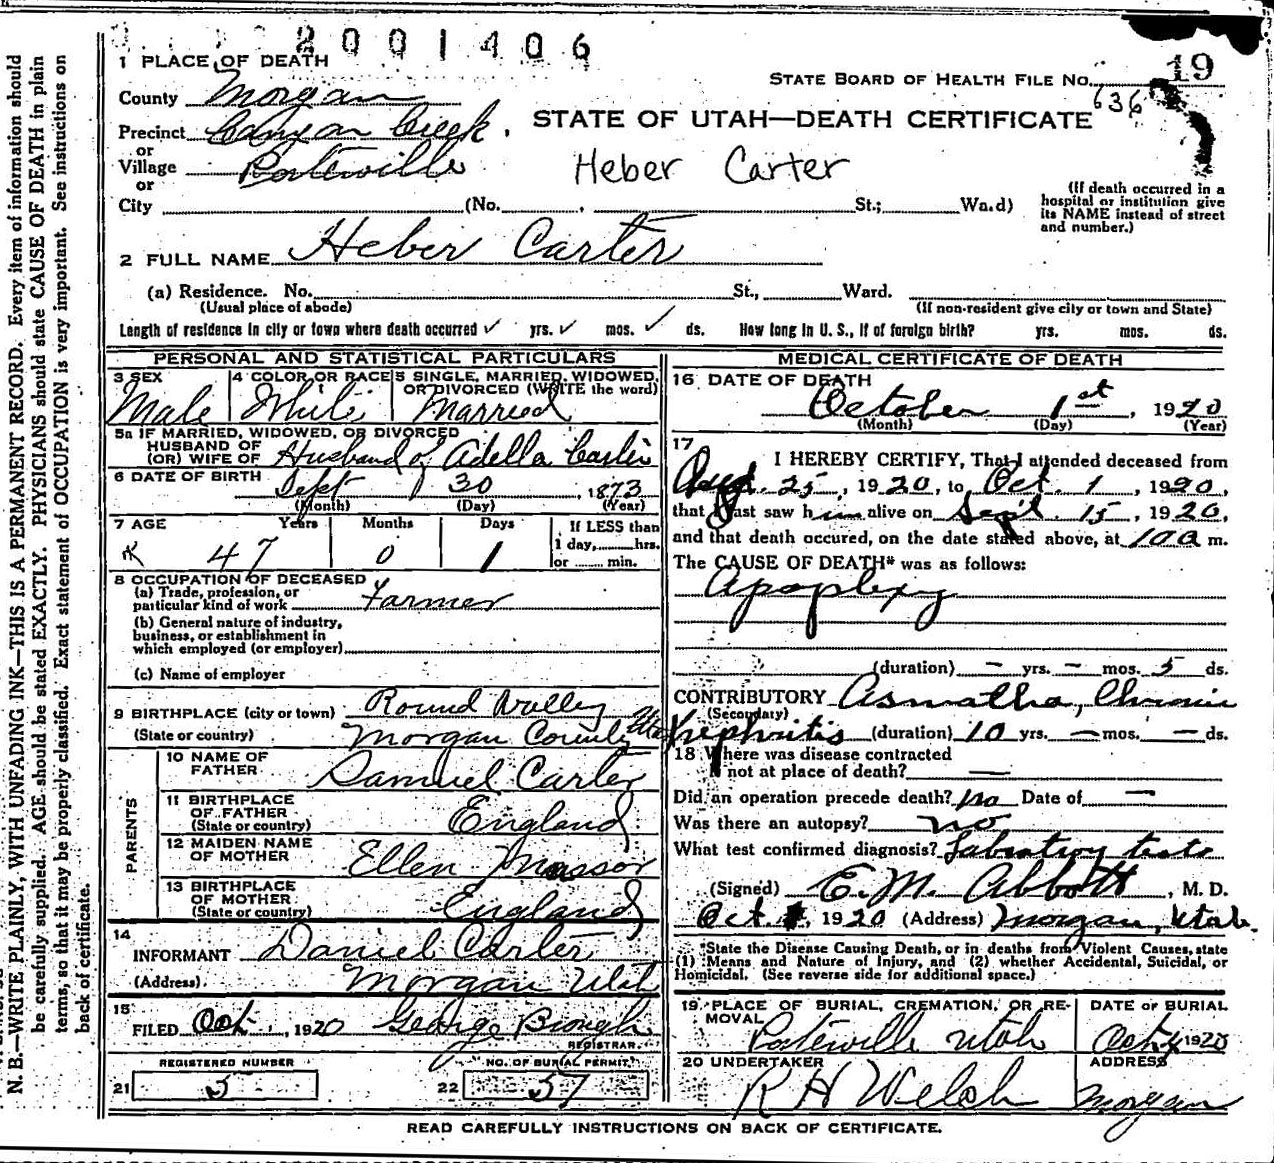 2001406
1 PLACE OF DEATH
STATE BOARD OF HEALTH FILE No. 19
County Morgan
636
Precinct Canyon Creek
STATE OF UTAH—DEATH CERTIFICATE
or
Village Porterville
Heber Carter
or
City (No. , St.; Wa.d)
(If death occurred in a
hospital or institution give
its NAME instead of street
and number.)
2 FULL NAME Heber Carter
(a) Residence. No. St., Ward.
(Usual place of abode) (If non-resident give city or town and State)
Length of residence in city or town where death occurred ✓ yrs. ✓ mos. ✓ ds. How long in U. S., if of foreign birth? yrs. mos. ds.
PERSONAL AND STATISTICAL PARTICULARS
3 SEX 4 COLOR OR RACE 5 SINGLE, MARRIED, WIDOWED,
OR DIVORCED (WRITE the word)
Male White Married
5a IF MARRIED, WIDOWED, OR DIVORCED
HUSBAND OF
(OR) WIFE OF Husband of Adella Carter
6 DATE OF BIRTH Sept 30, 1873
(Month) (Day) (Year)
7 AGE Years Months Days If LESS than
1 day, hrs.
or min.
47 0 1
8 OCCUPATION OF DECEASED
(a) Trade, profession, or
particular kind of work Farmer
(b) General nature of industry,
business, or establishment in
which employed (or employer)
(c) Name of employer
9 BIRTHPLACE (city or town) Round Valley
(State or country) Morgan County Utah
PARENTS
10 NAME OF
FATHER Samuel Carter
11 BIRTHPLACE
OF FATHER
(State or country) England
12 MAIDEN NAME
OF MOTHER Ellen Massor
13 BIRTHPLACE
OF MOTHER
(State or country) England
14
INFORMANT Daniel Carter
(Address) Morgan Utah
15
FILED Oct. , 1920 George Brough
REGISTRAR.
REGISTERED NUMBER NO. OF BURIAL PERMIT
21 5 22 57
MEDICAL CERTIFICATE OF DEATH
16 DATE OF DEATH
October 1st, 1920
(Month) (Day) (Year)
17
I HEREBY CERTIFY, That I attended deceased from
Aug. 25, 1920, to Oct. 1, 1920,
that I last saw him alive on Sept 15, 1920,
and that death occured, on the date stated above, at 100 a m.
The CAUSE OF DEATH* was as follows:
Apoplexy
(duration) — yrs. — mos. 5 ds.
CONTRIBUTORY Asmatha, Chronic
(Secondary)
Nephritis (duration) 10 yrs. — mos. — ds.
18 Where was disease contracted
if not at place of death? —
Did an operation precede death? no Date of —
Was there an autopsy? no
What test confirmed diagnosis? Labratory tests
(Signed) E. M. Abbott, M. D.
Oct. 1, 1920 (Address) Morgan, Utah.
*State the Disease Causing Death, or in deaths from Violent Causes, state
(1) Means and Nature of Injury, and (2) whether Accidental, Suicidal, or
Homicidal. (See reverse side for additional space.)
19 PLACE OF BURIAL, CREMATION, OR RE-
MOVAL DATE OF BURIAL
Porterville Utah Oct 4 1920
20 UNDERTAKER ADDRESS
R H Welch Morgan
READ CAREFULLY INSTRUCTIONS ON BACK OF CERTIFICATE.
N. B.—WRITE PLAINLY, WITH UNFADING INK—THIS IS A PERMANENT RECORD. Every item of information should
be carefully supplied. AGE should be stated EXACTLY. PHYSICIANS should state CAUSE OF DEATH in plain
terms, so that it may be properly classified. Exact statement of OCCUPATION is very important. See instructions on
back of certificate.